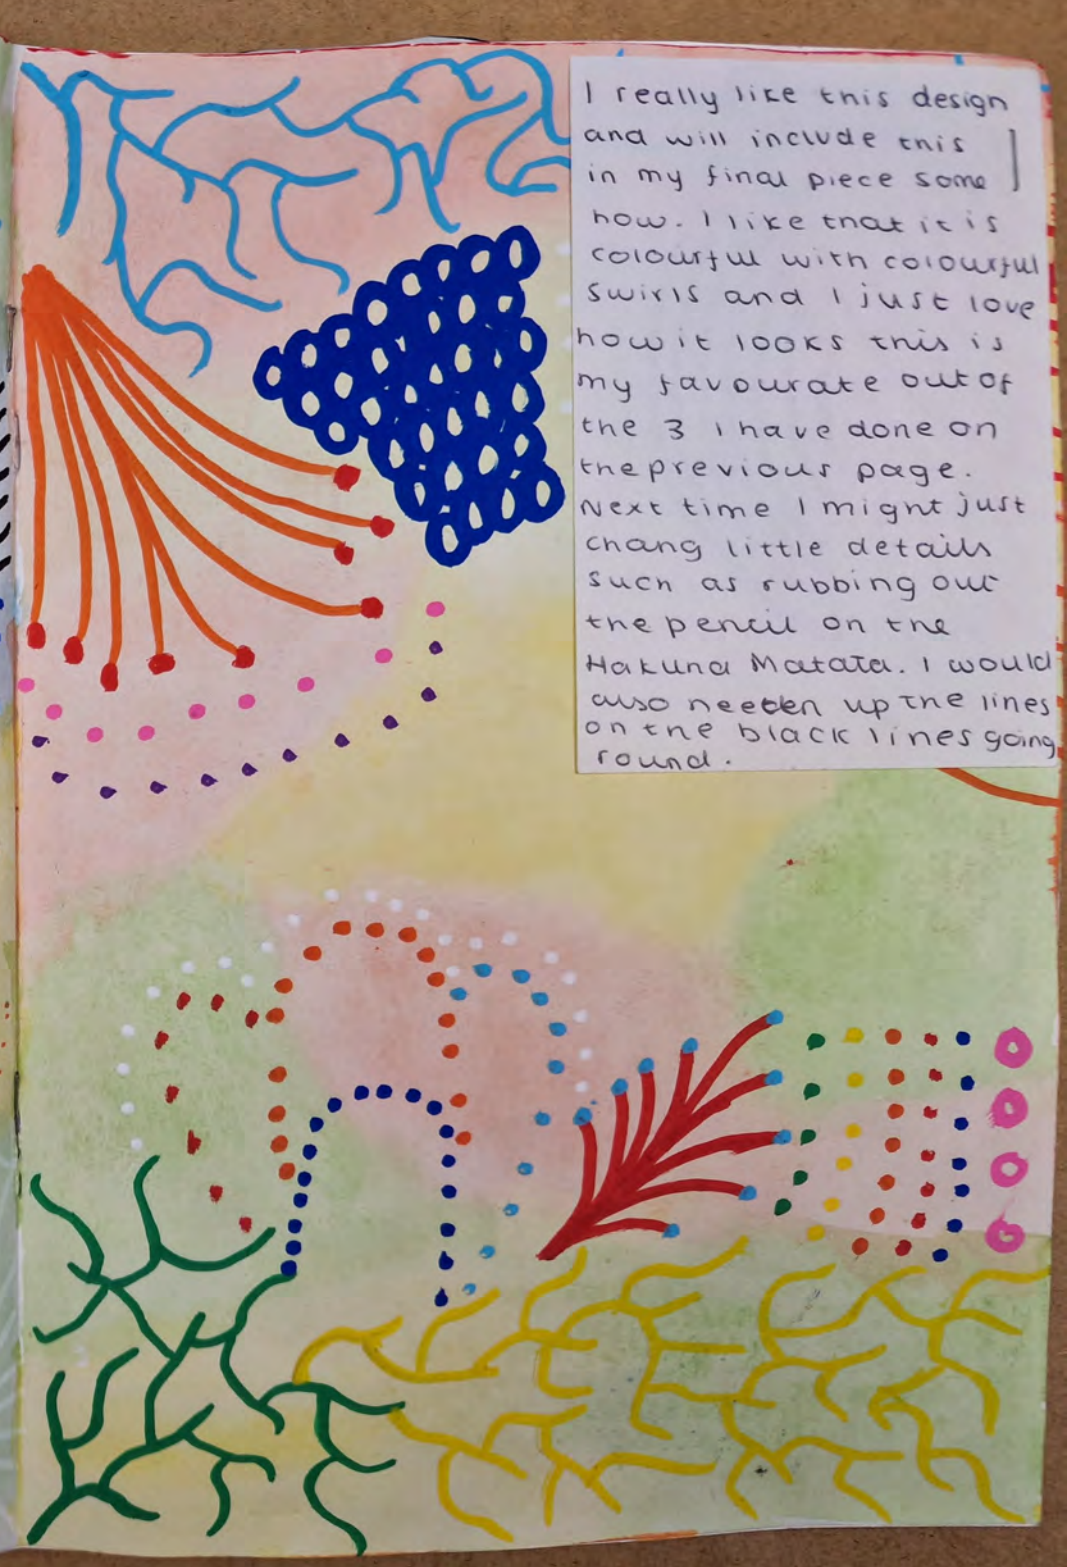 I really like this design
and will include this
in my final piece some
how. I like that it is
colourful with colourful
swirls and I just love
how it looks this is
my favourate out of
the 3 I have done on
the previous page.
Next time I might just
chang little details
such as rubbing out
the pencil on the
Hakuna Matata. I would
also neeten up the lines
on the black lines going
round.